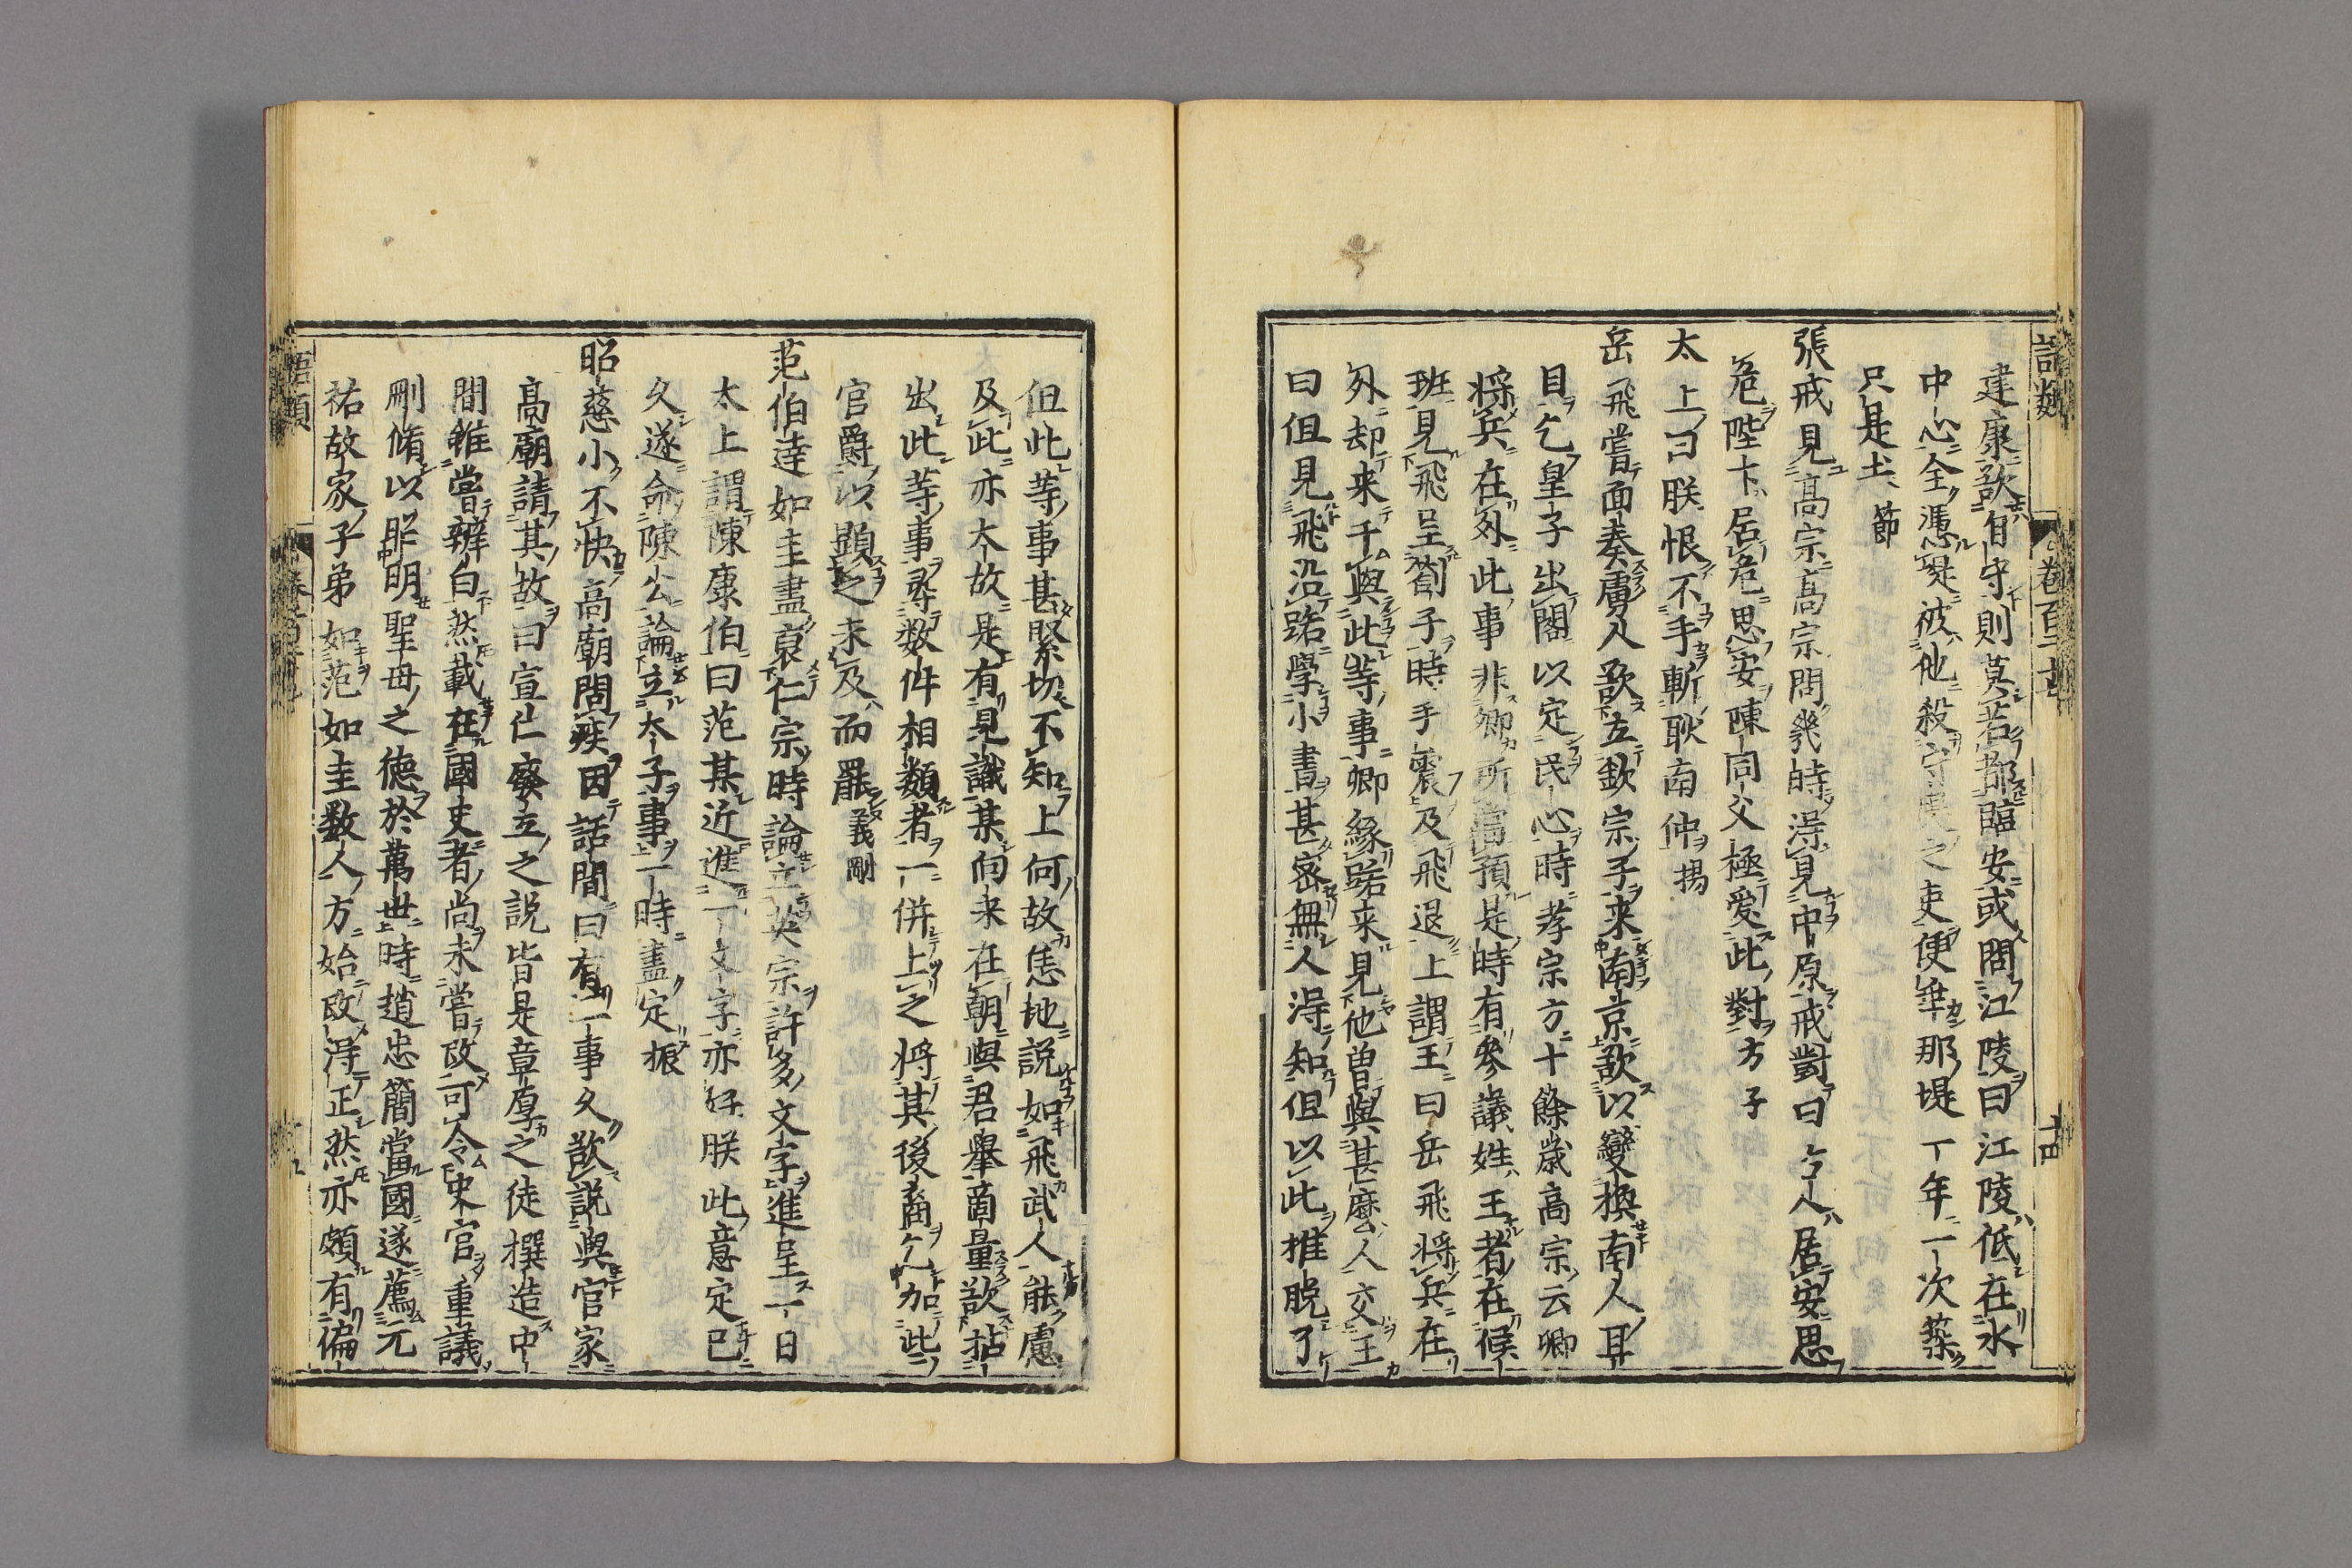 語類 卷百二十七 十四
建康欲自守則莫若都臨安或問江陵曰江陵低在水
中心全憑堤被他殺守堤之吏便乖那堤一年一次築
只是土節
張戒見高宗高宗問幾時得見中原戒對曰古人居安思
危陛下居危思安陳同父極愛此對方子
太上曰朕恨不手斬耿南仲揚
岳飛嘗面奏虜人欲立欽宗子来南京欲以變換南人耳
目乞皇子出閣以定民心時孝宗方十餘歲高宗云卿
将兵在外此事非卿所當預是時有參議姓王者在候
班見飛呈劄子時手震及飛退上謂王曰岳飛将兵在
外却来干與此等事卿緣路来見他曽與甚麼人交王
曰但見飛沿路學小書甚密無人得知但以此推脫了
但此等事甚緊切不知上何故恁地説如飛武人能慮
及此亦大故是有見識某向来在朝與君舉商量欲拈
出此等事尋数件相類者一併上之将其後裔乞加此
官爵以顯之未及而罷義剛
范伯達如圭盡裒仁宗時論立英宗許多文字進呈一日
太上謂陳康伯曰范某近進一文字亦好朕此意定已
久遂命陳公論立太子事一時盡定振
昭慈小不快高廟問疾因話間曰有一事久欲説與官家
高廟請其故曰宣仁廢立之説皆是章厚之徒撰造中
間雖嘗辨白然載在國史者尚未嘗改可令史官重議
刪脩以昭明聖母之德於萬世時趙忠簡當國遂薦元
祐故家子弟如范如圭数人方始改得正然亦頗有偏
語類